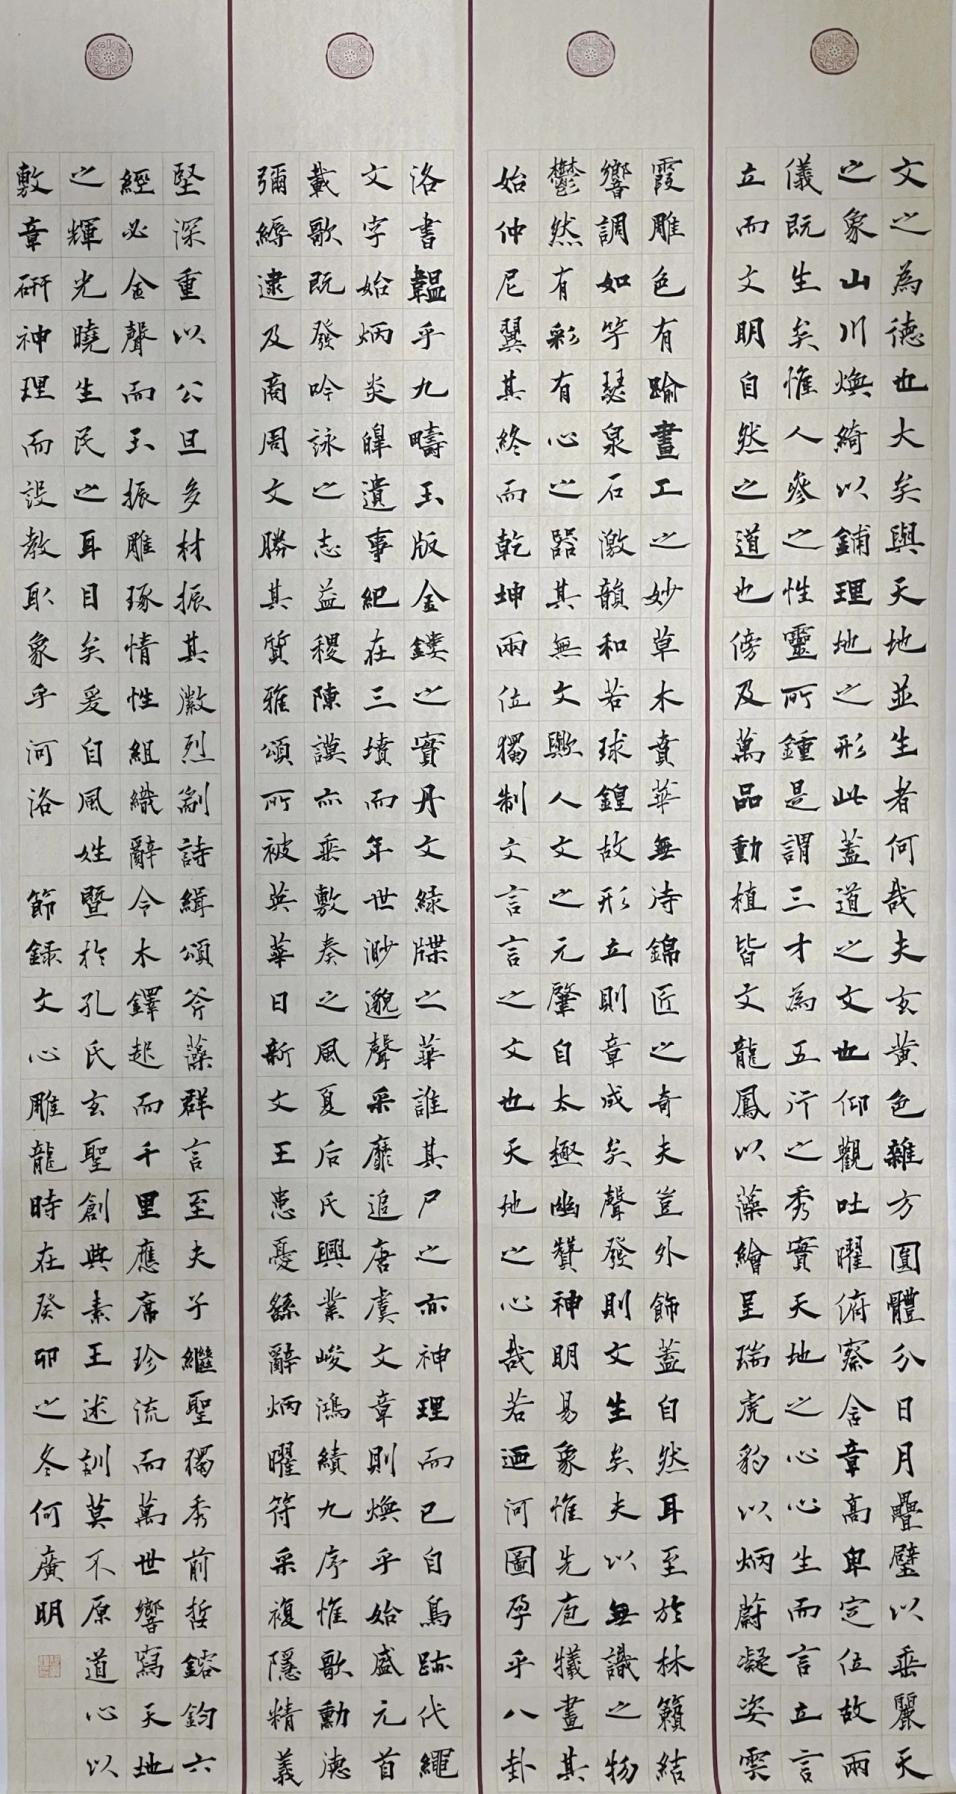 文之為德也大矣與天地並生者何哉夫玄黃色雜方圓體分日月疊璧以垂麗天
之象山川煥綺以鋪理地之形此蓋道之文也仰觀吐曜俯察含章高卑定位故兩
儀既生矣惟人參之性靈所鍾是謂三才為五行之秀實天地之心心生而言立言
立而文明自然之道也傍及萬品動植皆文龍鳳以藻繪呈瑞虎豹以炳蔚凝姿雲
霞雕色有踰畫工之妙草木賁華無待錦匠之奇夫豈外飾蓋自然耳至於林籟結
響調如竽瑟泉石激韻和若球鍠故形立則章成矣聲發則文生矣夫以無識之物
鬱然有彩有心之器其無文歟人文之元肇自太極幽贊神明易象惟先庖犧畫其
始仲尼翼其終而乾坤兩位獨制文言言之文也天地之心哉若迺河圖孕乎八卦
洛書韞乎九疇玉版金鏤之實丹文綠牒之華誰其尸之亦神理而已自鳥跡代繩
文字始炳炎皞遺事紀在三墳而年世渺邈聲采靡追唐虞文章則煥乎始盛元首
載歌既發吟詠之志益稷陳謨亦垂敷奏之風夏后氏興業峻鴻績九序惟歌勳德
彌縟逮及商周文勝其質雅頌所被英華日新文王患憂繇辭炳曜符采複隱精義
堅深重以公旦多材振其徽烈剬詩緝頌斧藻群言至夫子繼聖獨秀前哲鎔鈞六
經必金聲而玉振雕琢情性組織辭令木鐸起而千里應席珍流而萬世響寫天地
之輝光曉生民之耳目矣爰自風姓暨於孔氏玄聖創典素王述訓莫不原道心以
敷章研神理而設教取象乎河洛 節錄文心雕龍時在癸卯之冬何廣明